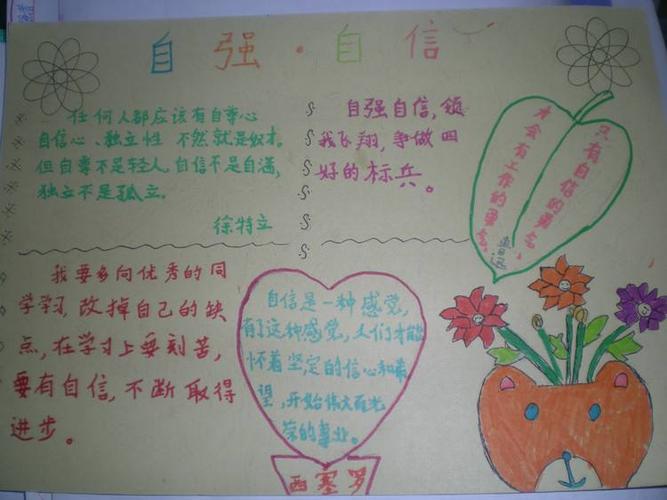 自强·自信
任何人都应该有自尊心
自信心、独立性 不然就是奴才。
但自尊不是轻人,自信不是自满,
独立不是孤立。
徐特立
自强自信,领
我飞翔,争做四
好的标兵。
只有自信的勇气、
才会有工作的勇气。
鲁迅
我要多向优秀的同
学学习,改掉自己的缺
点,在学习上要刻苦,
要有自信,不断取得
进步。
自信是一种感觉,
有了这种感觉,人们才能
怀着坚定的信心和希
望,开始伟大而光
荣的事业。
西塞罗